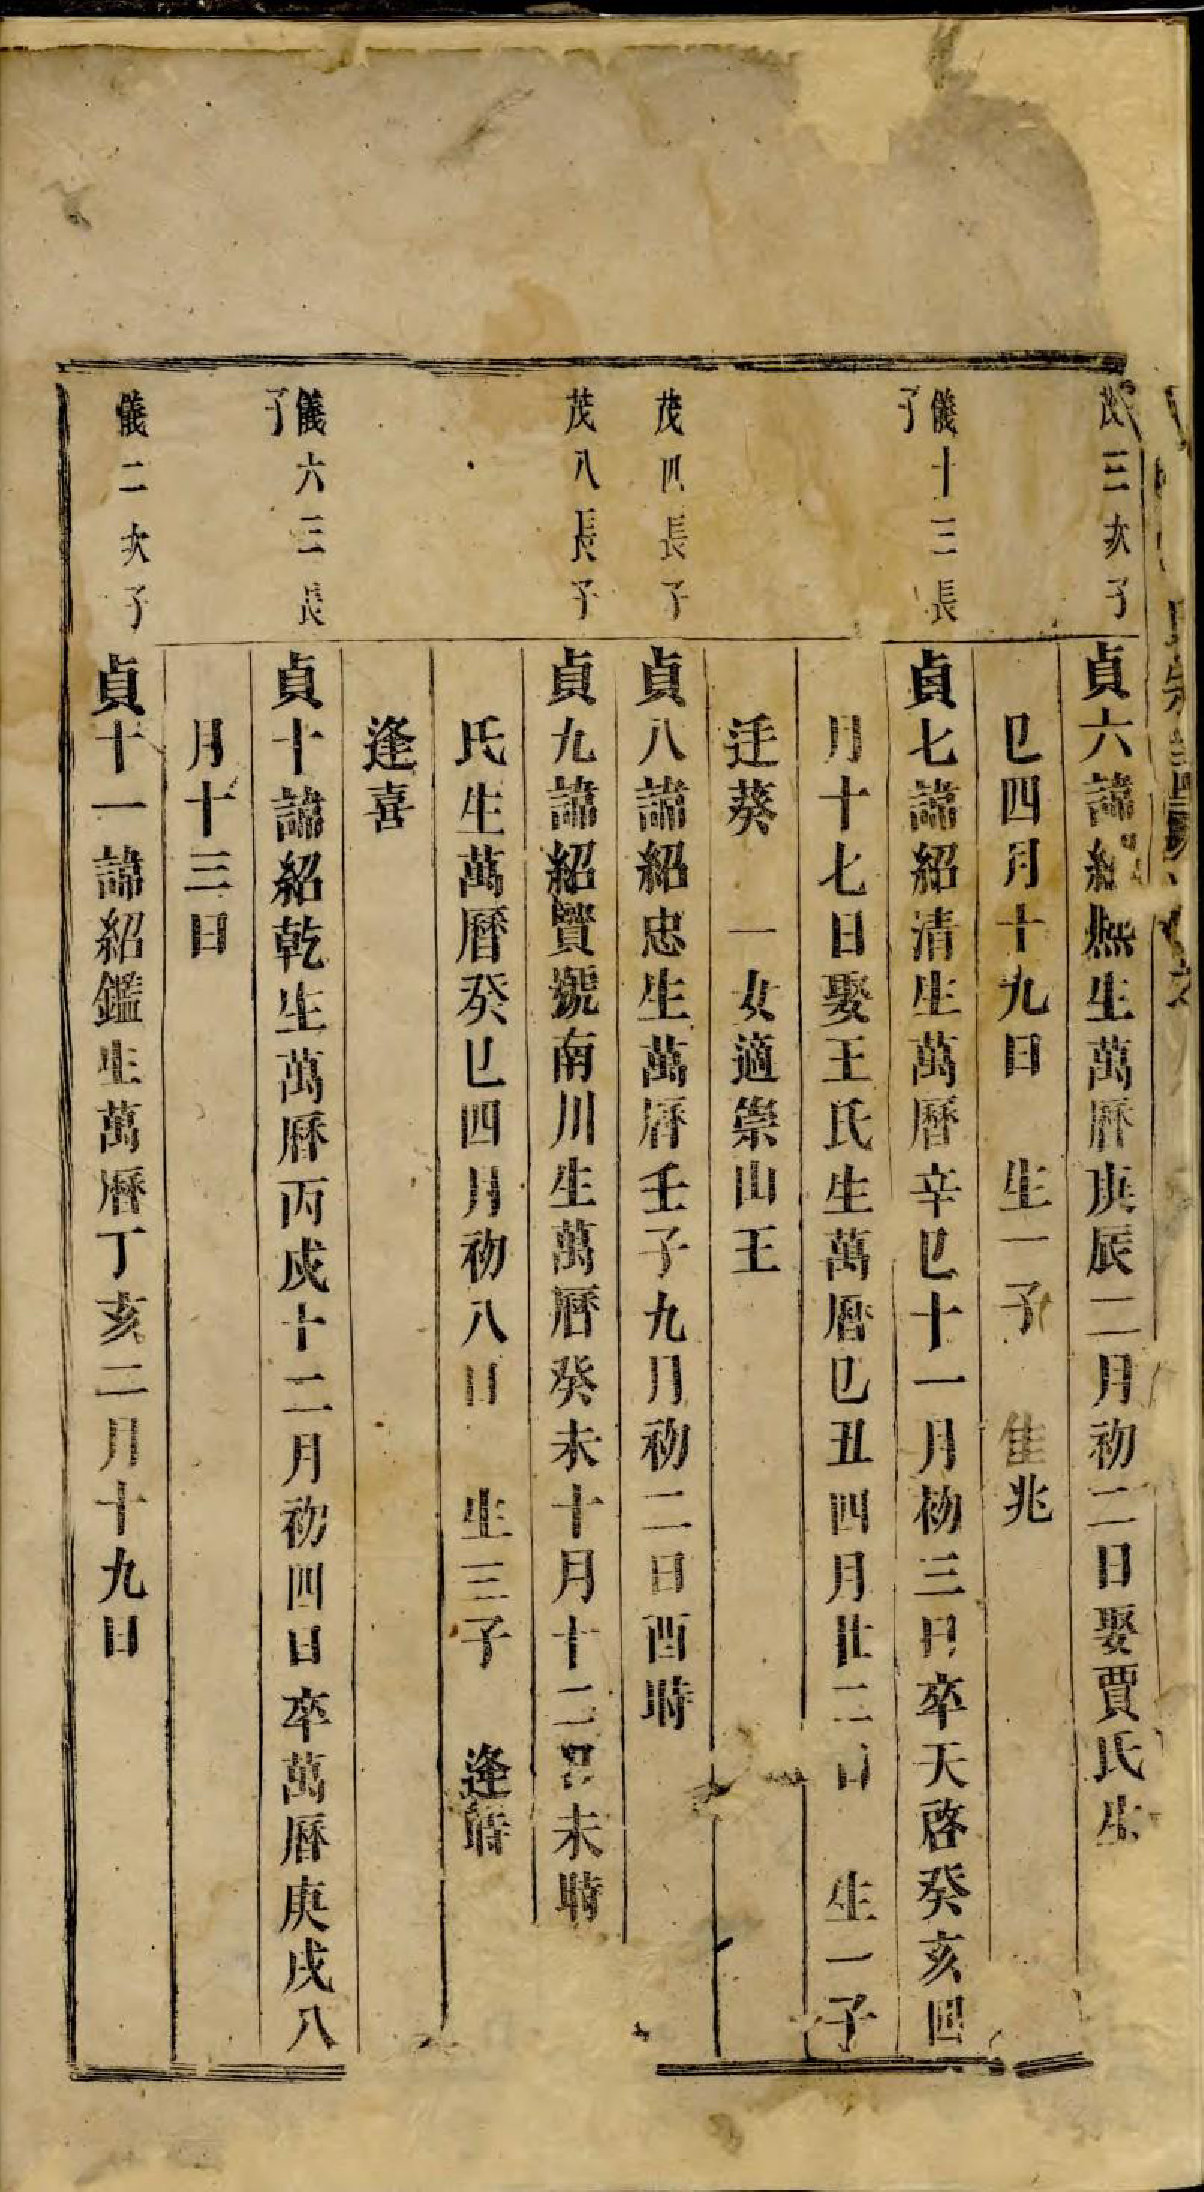 茂三次子
貞六諱紹熈生萬曆庚辰二月初二日娶賈氏生
巳四月十九日　生一子　隹兆
儀十三長子
貞七諱紹清生萬曆辛巳十一月初三日卒天啓癸亥四
月十七日娶王氏生萬曆巳丑四月廿二日　生一子
迋葵　一女適崇山王
茂四長子
貞八諱紹忠生萬曆壬子九月初二日酉時
茂八長子
貞九諱紹賢號南川生萬曆癸未十月十二日未時
氏生萬曆癸巳四月初八日　生三子　逢
逢喜
儀六三長子
貞十諱紹乾生萬曆丙戌十二月初四日卒萬曆庚戌八
月十三日
儀二次子
貞十一諱紹鑑生萬曆丁亥二月十九日